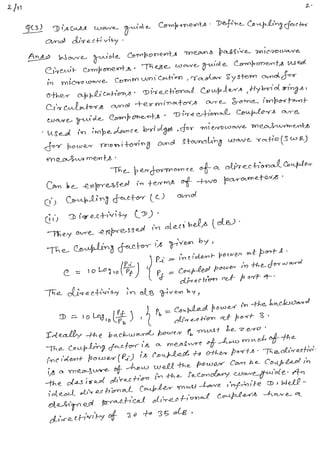 2/11
2.
Q(3) Discuss wave guide Components. Define Coupling factor
and directivity.
Ans Wave guide Components means passive microwave
Circuit Components. These wave guide Components used
in microwave Communication, radar System and for
other applications. Directional Couplers, Hybrid rings,
Circulators and terminators are Some important
wave guide Components. Directional Couplers are
used in impedance bridges, for microwave measurments
for power monitoring and Standing wave ratio (SWR)
measurments.
The performance of a directional Coupler
Can be expressed in terms of two parameters.
(i) Coupling factor (C) and
(ii) Directivity (D).
They are expressed in decibels (dB).
The Coupling factor is given by,
C = 10 Log10 (Pi/Pf) } Pi = incident power at port 1.
Pf = Coupled power in the forward
direction at port 4.
The directivity in dB given by,
D = 10 Log10 (Pf/Pb), { Pb = Coupled power in the backward
direction at port 3.
Ideally the backward power Pb must be zero.
The Coupling factor is a measure of how much of the
incident power (Pi) is Coupled to other ports. The directivity
is a measure of how well the power Can be Coupled in
the desired direction in the secondary wave guide. An
ideal directional Coupler must have infinite D. Well-
designed practical directional Couplers have a
directivity of 30 to 35 dB.